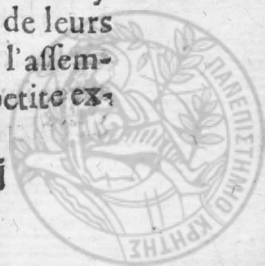 de leurs
l'aſſem-
petite ex-
ΠΑΝΕΠΙΣΤΗΜΙΟ ΚΡΗΤΗΣ